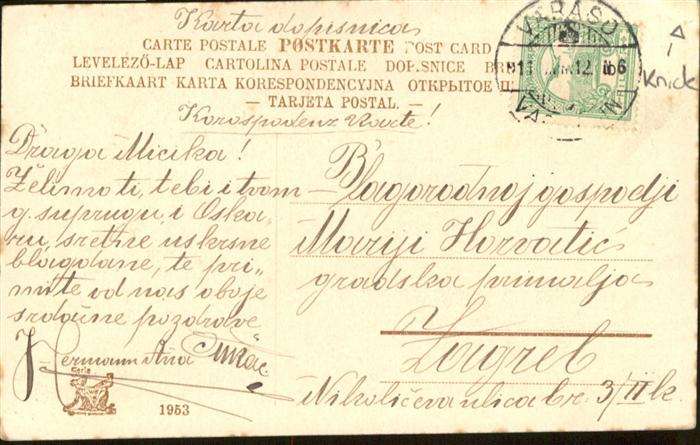 Karta dopisnica
CARTE POSTALE POSTKARTE POST CARD
LEVELEZŐ-LAP CARTOLINA POSTALE DOPISNICE
BRIEFKAART KARTA KORESPONDENCYJNA ОТКРЫТОЕ
— TARJETA POSTAL. —
Korospodenz Karte!
VARASD
911 12
Knick
Draga Micika!
Želimo ti, tebi i tvom
g. suprugu, i Oska-
ru, sretne uskrsne
blagdane, te pri-
mite od nas oboje
srdačne pozdrave
Hermann Ana
1953
Blagorodnoj gospodji
Mariji Horvatić
gradska primalja
Zagreb
Nikolićeva ulica br. 3/II k.